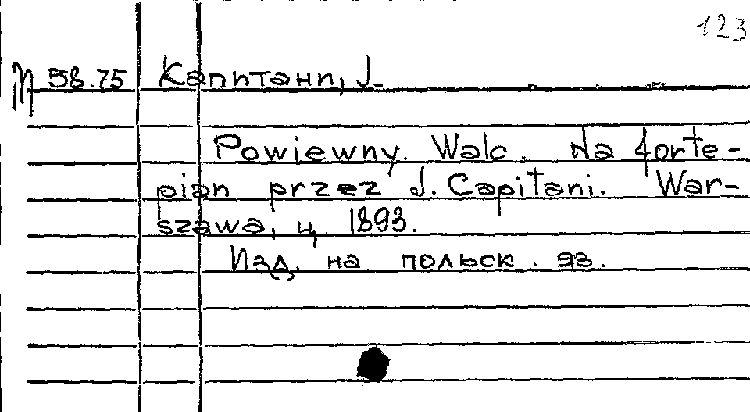 123
П 58.75 Капитани, J.
Powiewny Walc. Na forte-
pian przez J. Capitani. War-
szawa, ц. 1893.
Изд. на польск. яз.